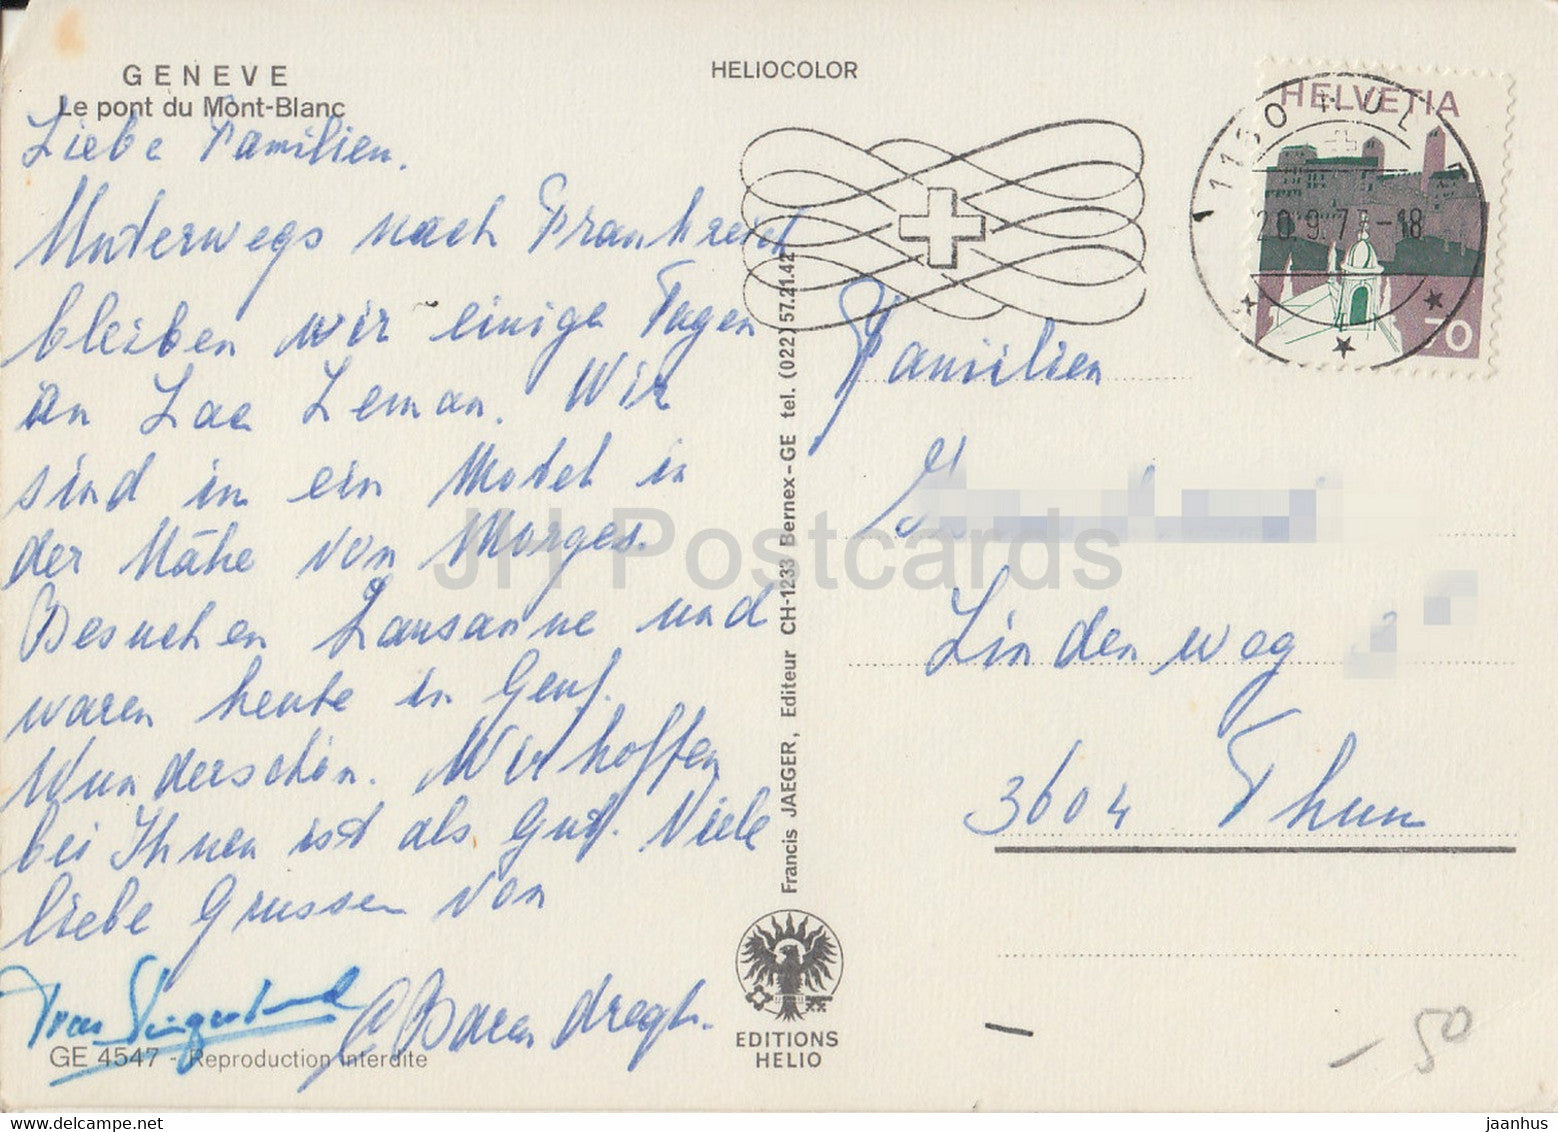 GENEVE
Le pont du Mont-Blanc
HELIOCOLOR
HELVETIA
70
1180 ROLLE
20.9.7 -18
Liebe Familien.
Unterwegs nach Frankreich
bleiben wir einige Tagen
an Lac Leman. Wir
sind in ein Motel in
der Nähe von Morges.
Besuchen Lausanne und
waren heute in Genf.
Wunderschön. Wir hoffen
bei Ihnen ist als gut. Viele
liebe Grussen von
Familien
Lindenweg
3604 Thun
Francis JAEGER, Editeur CH-1233 Bernex-GE tel. (022) 57.21.42
EDITIONS
HELIO
GE 4547 - Reproduction interdite
- 50
JH Postcards
www.delcampe.net
jaanhus